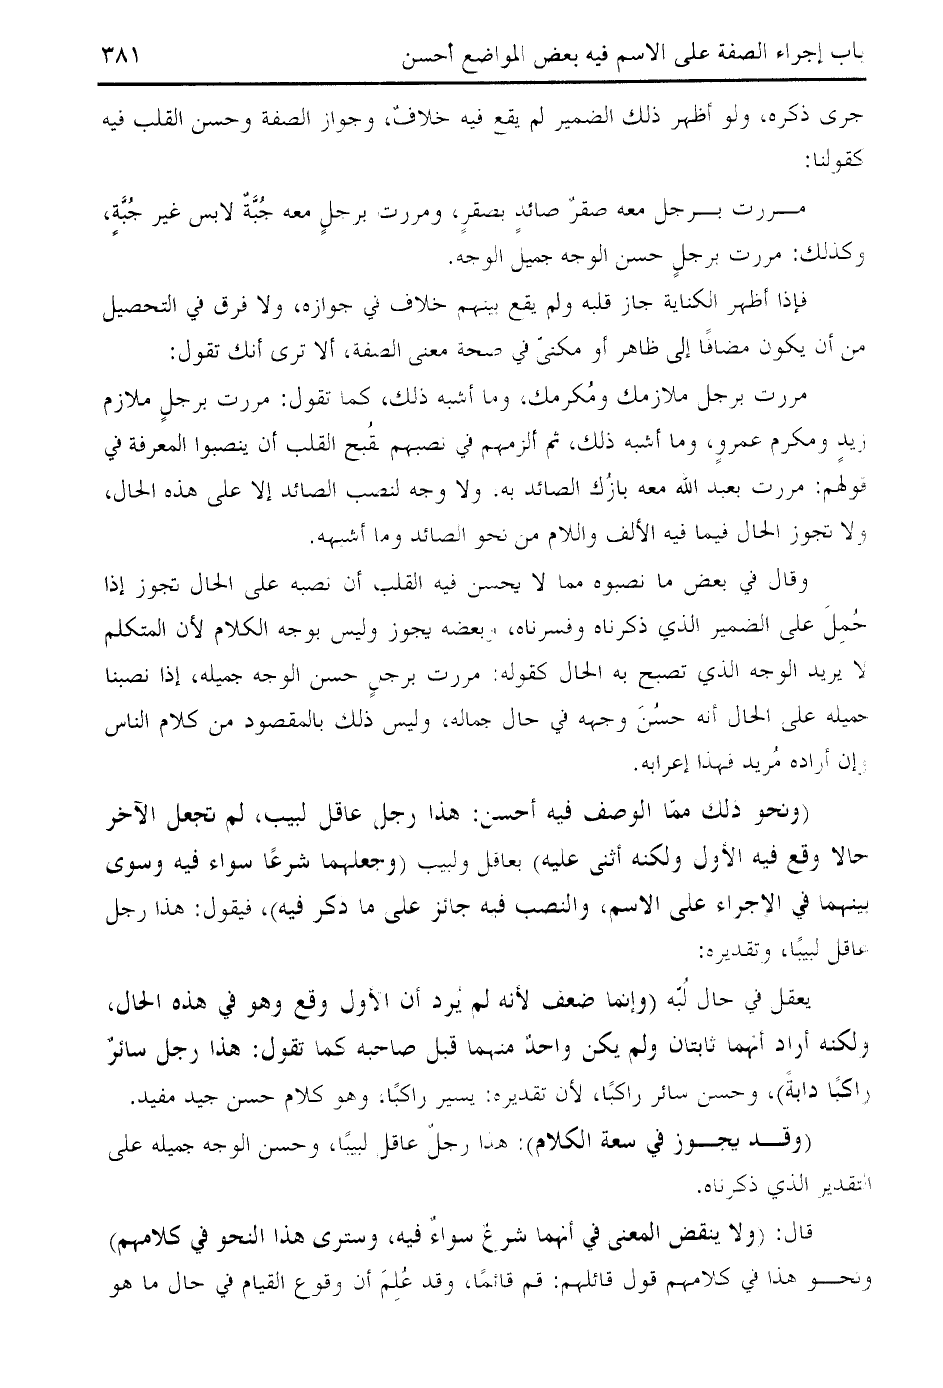 باب إجراء الصفة على الاسم فيه بعض المواضع أحسن ٣٨١
جرى ذكره، ولو أظهر ذلك الضمير لم يقع فيه خلافٌ، وجواز الصفة وحسن القلب فيه
كقولنا:
مـــررت بـــرجل معه صقرٌ صائدٍ بصقرٍ، ومررت برجلٍ معه جُبَّةٌ لابس غير جُبَّةٍ،
وكذلك: مررت برجلٍ حسن الوجه جميل الوجه.
فإذا أظهر الكناية جاز قلبه ولم يقع بينهم خلاف في جوازه، ولا فرق في التحصيل
من أن يكون مضافًا إلى ظاهر أو مكنيّ في صحة معنى الصفة، ألا ترى أنك تقول:
مررت برجل ملازمك ومُكرمك، وما أشبه ذلك، كما تقول: مررت برجلٍ ملازم
زيدٍ ومكرم عمروٍ، وما أشبه ذلك، ثم ألزمهم في نصبهم لقُبح القلب أن ينصبوا المعرفة في
قولهم: مررت بعبد الله معه بازُك الصائد به. ولا وجه لنصب الصائد إلا على هذه الحال،
ولا تجوز الحال فيما فيه الألف واللام من نحو الصائد وما أشبهه.
وقال في بعض ما نصبوه مما لا يحسن فيه القلب أن نصبه على الحال تجوز إذا
حُمِلَ على الضمير الذي ذكرناه وفسرناه، وبعضه يجوز وليس بوجه الكلام لأن المتكلم
لا يريد الوجه الذي تصبح به الحال كقوله: مررت برجلٍ حسن الوجه جميله، إذا نصبنا
جميله على الحال أنه حسُنَ وجهه في حال جماله، وليس ذلك بالمقصود من كلام الناس
وإن أراده مُريد فهذا إعرابه.
(ونحو ذلك ممّا الوصف فيه أحسن: هذا رجل عاقل لبيب، لم تجعل الآخر
حالا وقع فيه الأول ولكنه أثنى عليه) بعاقل ولبيب (وجعلهما شرعًا سواء فيه وسوى
بينهما في الإجراء على الاسم، والنصب فيه جائز على ما ذكر فيه)، فيقول: هذا رجل
عاقل لبيبًا، وتقديره:
يعقل في حال لُبّه (وإنما ضعف لأنه لم يُرد أن الأول وقع وهو في هذه الحال،
ولكنه أراد أنهما ثابتان ولم يكن واحدٌ منهما قبل صاحبه كما تقول: هذا رجل سائرٌ
راكبًا دابةً)، وحسن سائر راكبًا، لأن تقديره: يسير راكبًا. وهو كلام حسن جيد مفيد.
(وقـــد يجـــوز في سعة الكلام): هذا رجلٌ عاقل لبيبًا، وحسن الوجه جميله على
التقدير الذي ذكرناه.
قال: (ولا ينقض المعنى في أنهما شرعٌ سواءٌ فيه، وسترى هذا النحو في كلامهم)
ونحـــو هذا في كلامهم قول قائلهم: قم قائمًا، وقد عُلِمَ أن وقوع القيام في حال ما هو